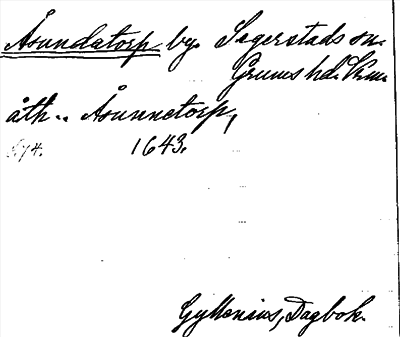 Åsundatorp by. Segerstads sn.
Grums hd. Vrm.
åth.. Åsunnetorp,
s. 74. 1643.
Gyllenius, Dagbok.